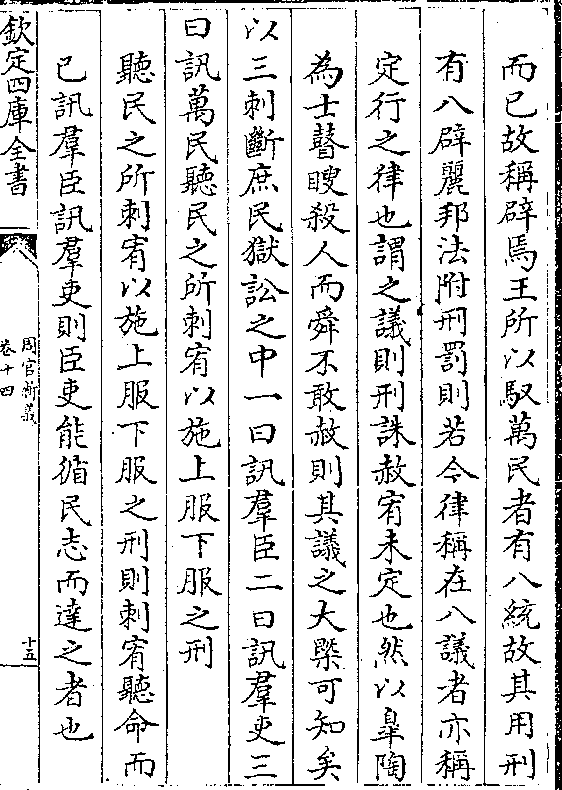 而已故稱辟焉王所以馭萬民者有八統故其用刑
有八辟麗邦法附刑罰則若今律稱在八議者亦稱
定行之律也謂之議則刑誅赦宥未定也然以臯陶
為士瞽瞍殺人而舜不敢赦則其議之大槩可知矣
以三刺斷庶民獄訟之中一曰訊羣臣二曰訊羣吏三
曰訊萬民聽民之所刺宥以施上服下服之刑
聽民之所刺宥以施上服下服之刑則刺宥聽命而
已訊羣臣訊羣吏則臣吏能循民志而達之者也
欽定四庫全書
周官新義
卷十四
十五